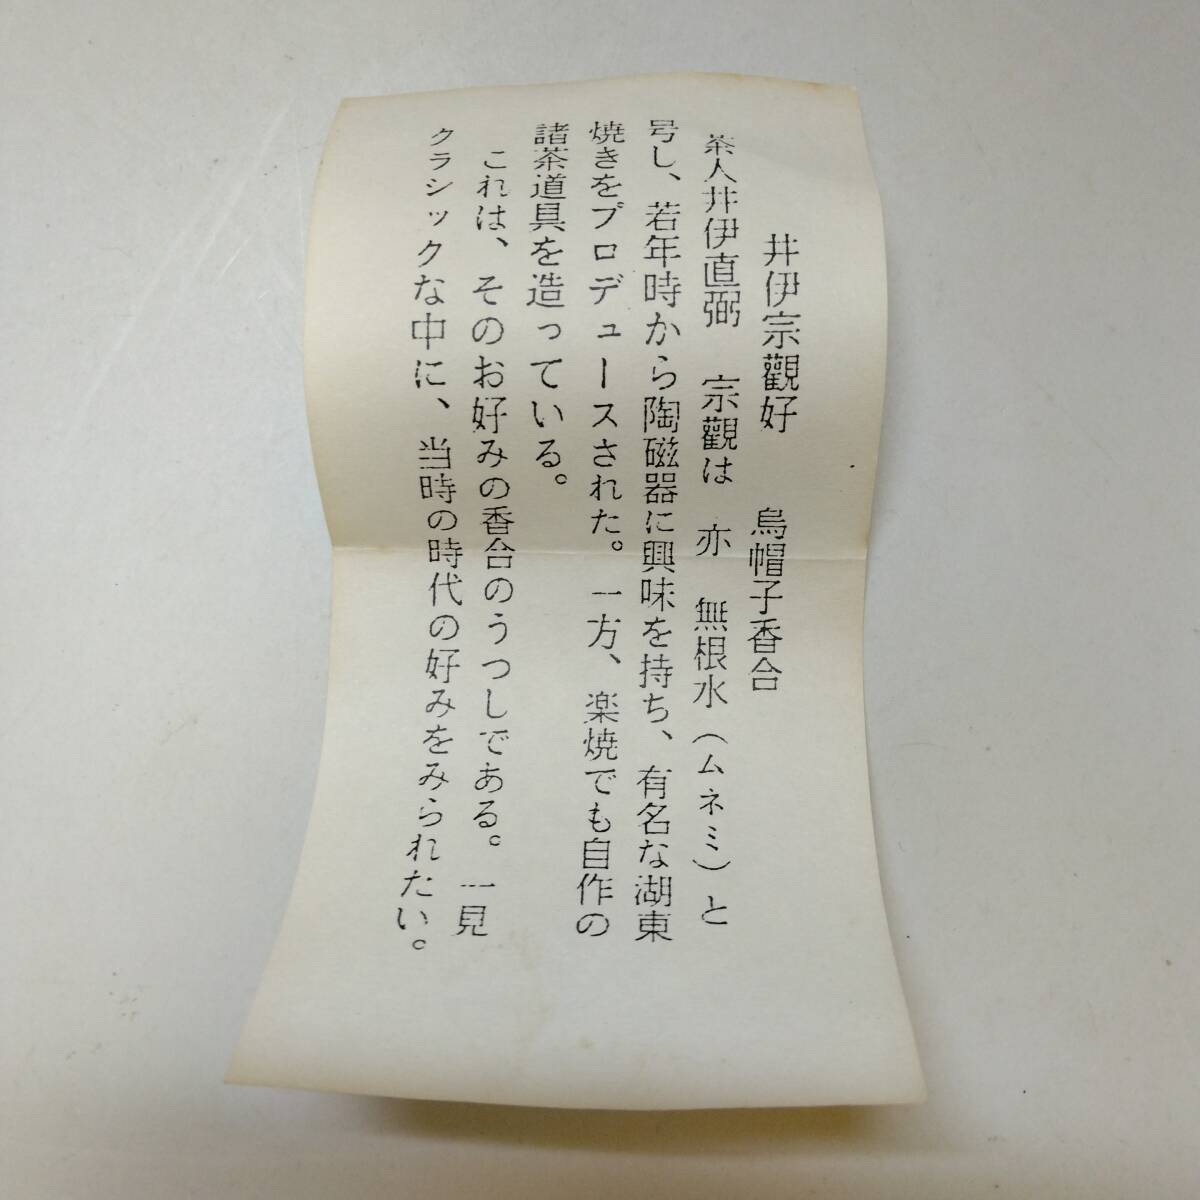 井伊宗觀好　烏帽子香合
茶人井伊直弼　宗觀は　亦　無根水（ムネミ）と
号し、若年時から陶磁器に興味を持ち、有名な湖東
焼きをプロデュースされた。一方、楽焼でも自作の
諸茶道具を造っている。
これは、そのお好みの香合のうつしである。一見
クラシックな中に、当時の時代の好みをみられたい。